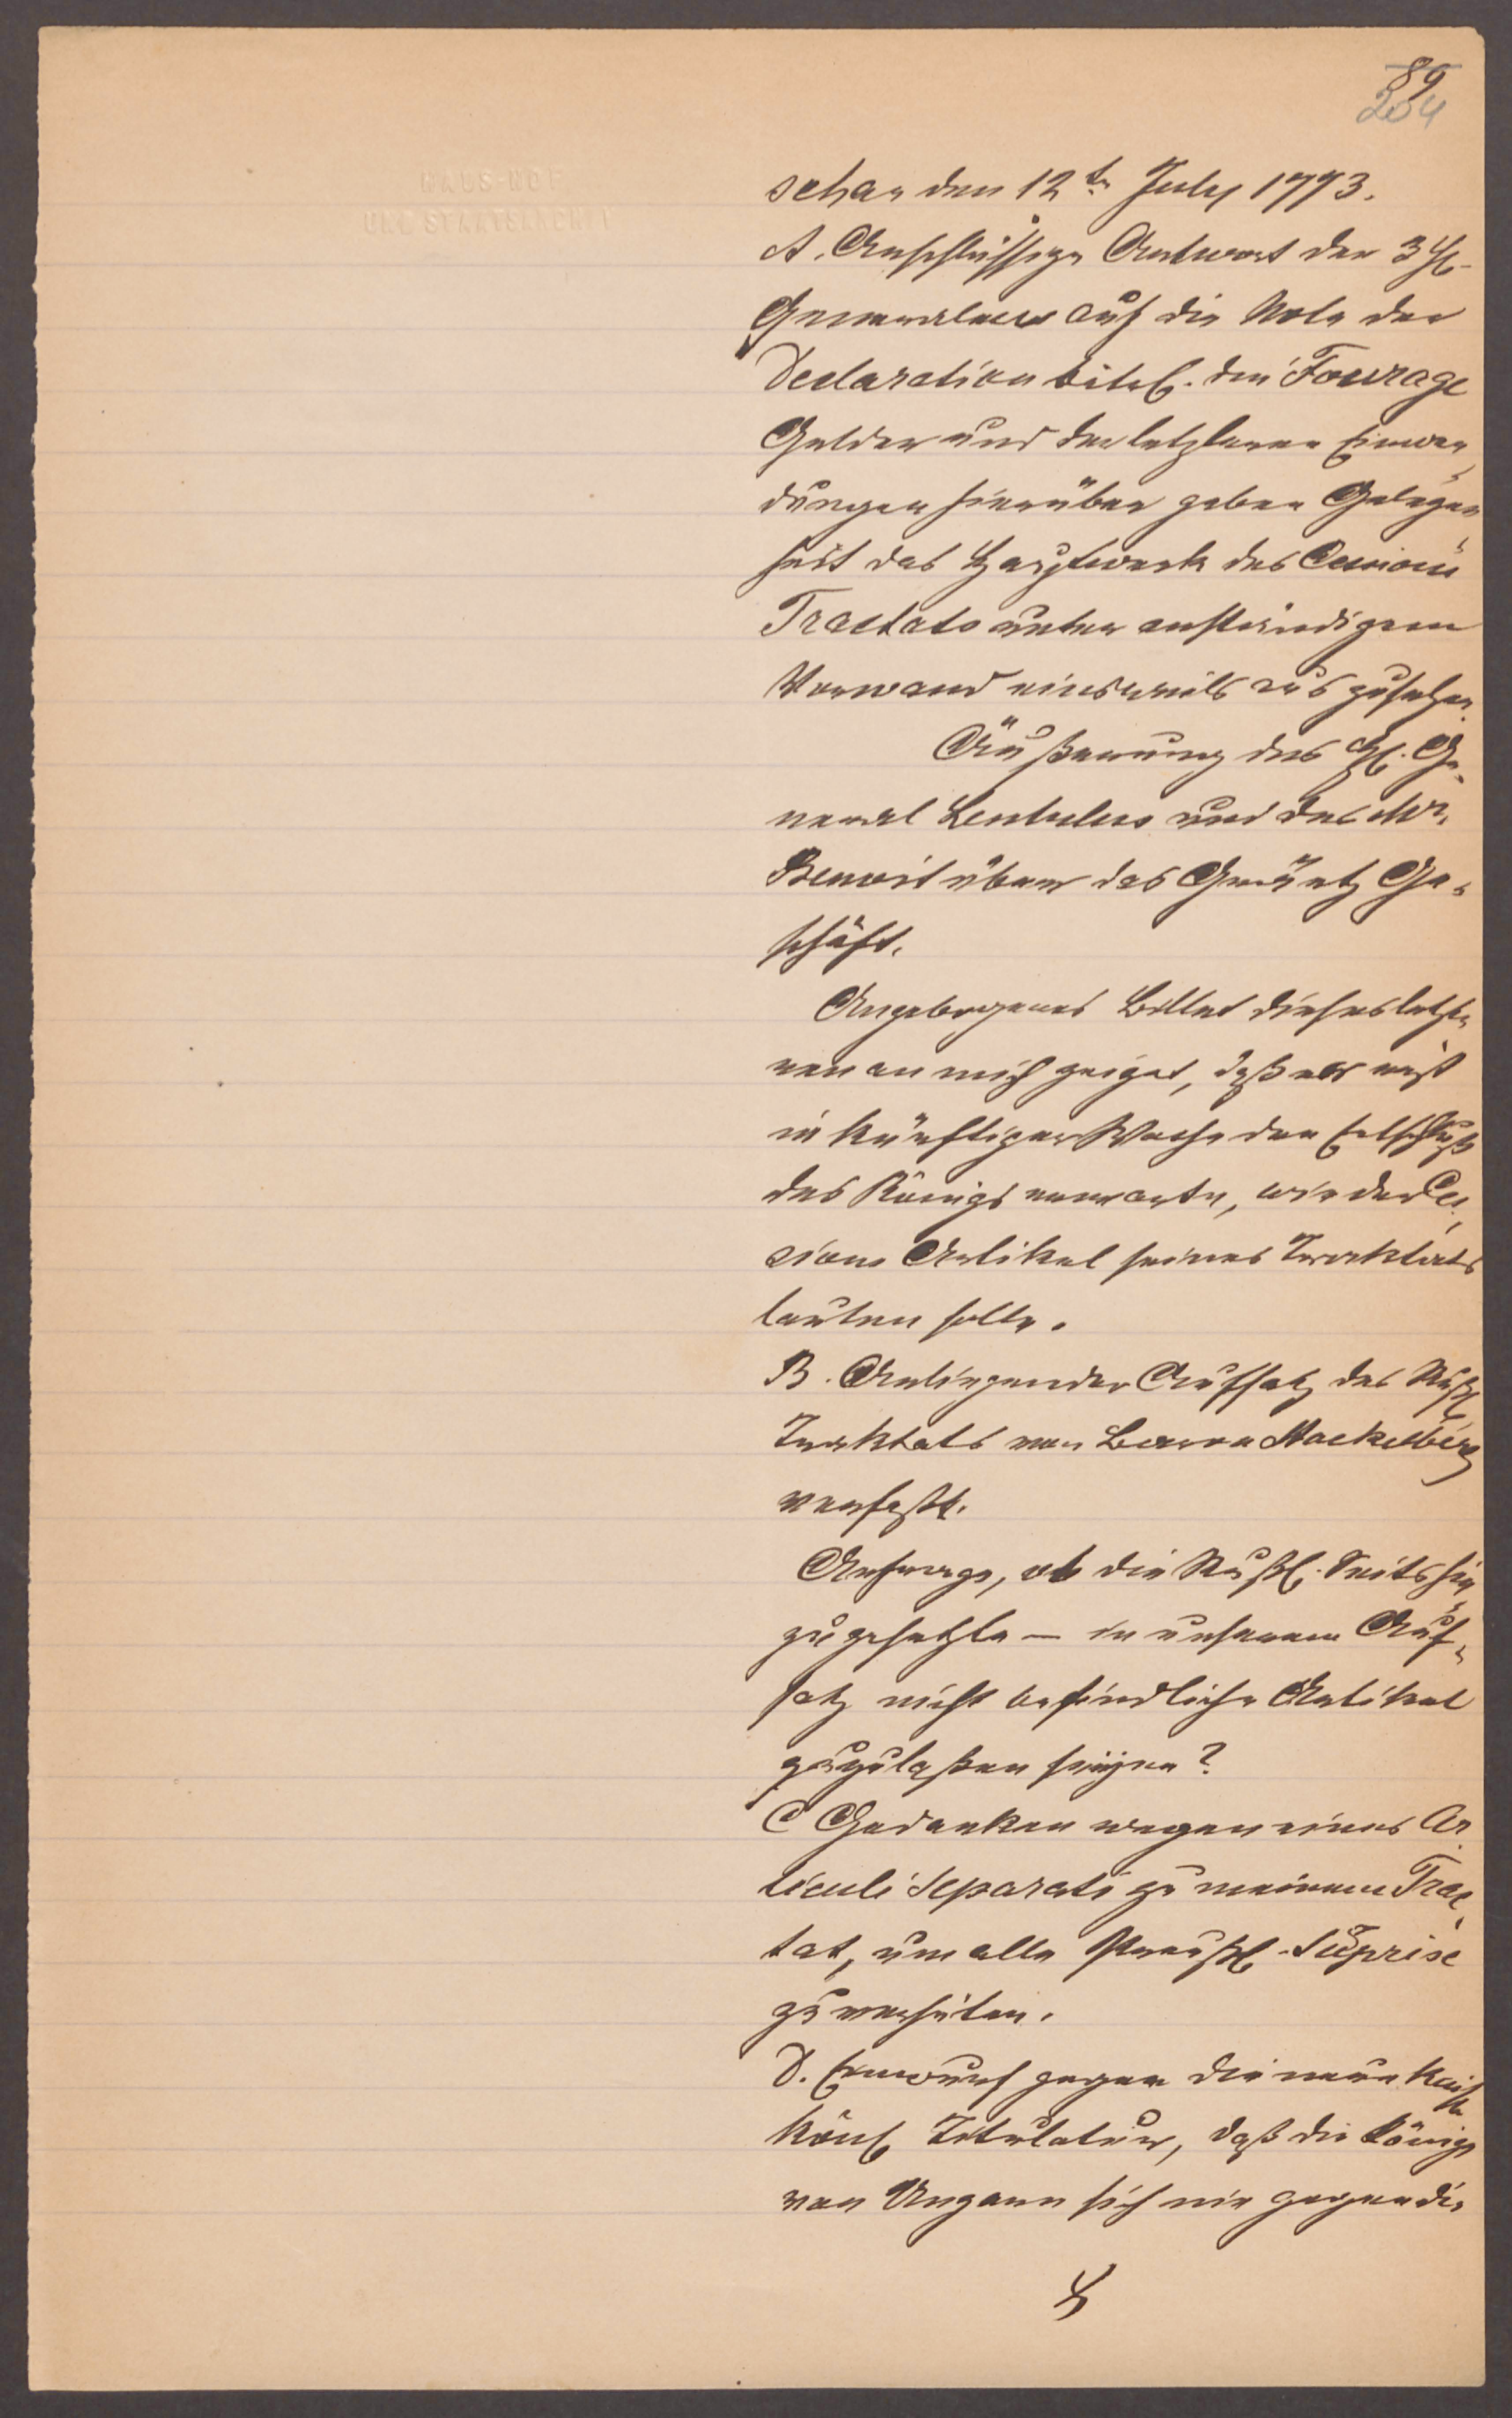 89
204
HAUS-HOF
UND STAATSARCHIV
schau den 12tn July 1773.
A. Anschlüssige Antwort der 3 H.
Generalen auf die Note der
Declaration bitrf. den Fourage
Gelder und der letzteren Einwen,
dungen hierüber geben Gelegen,
heit das Hauptwerk des Cessions
Tractats unter anständigem
Vorwand einsweils auszusetzen.
Äußerung des H. Ge,
neral Lentulus und des Mr.
Benoit über das Gräntz Ge,
schäft.
Angebogenes Billet dieses letzte,
ren an mich zeiget, daß er erst
in künftiger Woche den Entschluß
des Königs erwarte, wie der Ces,
sions Artikel seines Tracktats
lauten solle.
B. Anliegender Aufsatz des Rußl.
Tracktats von Baron Stackelberg
verfaßt.
Anfrage, ob die Rußl. Seits hin,
zugesetzte – in unserem Auf,
satz nicht befindliche Artikel
zuzulaßen seyen?
C Gedanken wegen eines Ar,
ticuli Separati zu meinem Trac,
tat, um alle Preußl. Suprise
zu verhüten.
D. Einwurf gegen die neue Kais.
Könl. Titulatur, daß die Könige
von Ungarn sich nie gegen die